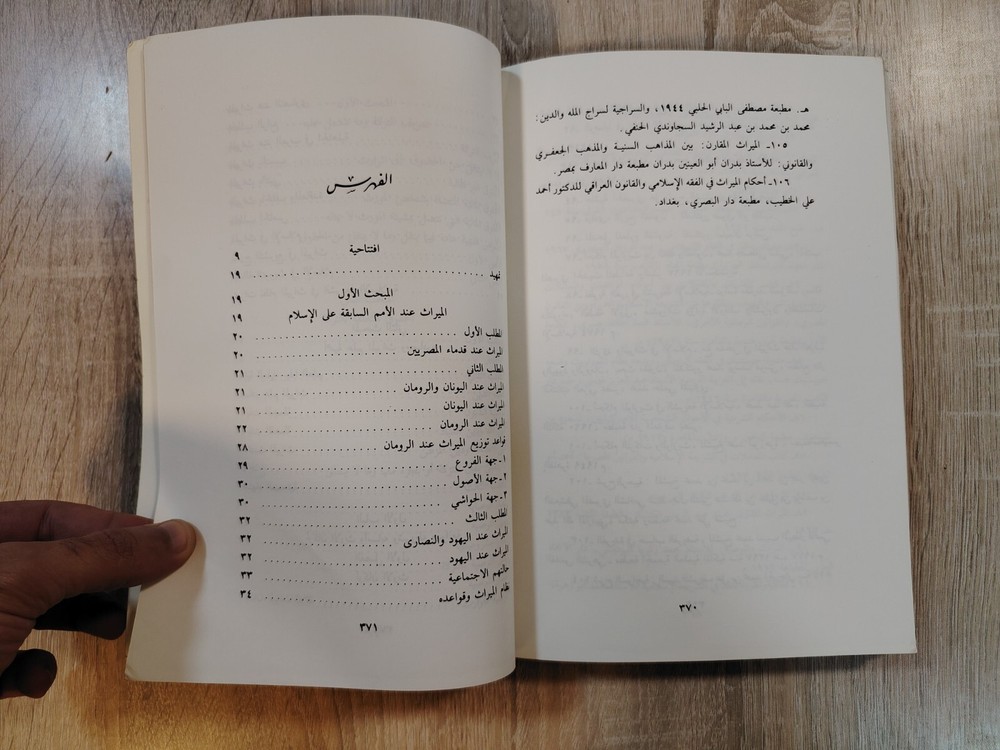 هـ. مطبعة مصطفى البابي الحلبي ١٩٤٤، والسراجية لسراج المله والدين:
محمد بن محمد بن عبد الرشيد السجاوندي الحنفي.
١٠٥ـ الميراث المقارن: بين المذاهب السنية والمذهب الجعفري
والقانوني: للأستاذ بدران أبو العينين بدران مطبعة دار المعارف بمصر.
١٠٦ـ أحكام الميراث في الفقه الإسلامي والقانون العراقي للدكتور أحمد
علي الخطيب، مطبعة دار البصري، بغداد.
٣٧٠
الفهرس
افتتاحية ٩
تمهيد ١٩
المبحث الأول ١٩
الميراث عند الأمم السابقة على الإسلام ١٩
المطلب الأول ٢٠
الميراث عند قدماء المصريين ٢٠
المطلب الثاني ٢١
الميراث عند اليونان والرومان ٢١
الميراث عند اليونان ٢١
الميراث عند الرومان ٢٢
قواعد توزيع الميراث عند الرومان ٢٨
١ـ جهة الفروع ٢٩
٢ـ جهة الأصول ٣٠
٣ـ جهة الحواشي ٣٠
المطلب الثالث ٣٢
الميراث عند اليهود والنصارى ٣٢
الميراث عند اليهود ٣٢
حالتهم الاجتماعية ٣٣
نظام الميراث وقواعده ٣٤
٣٧١